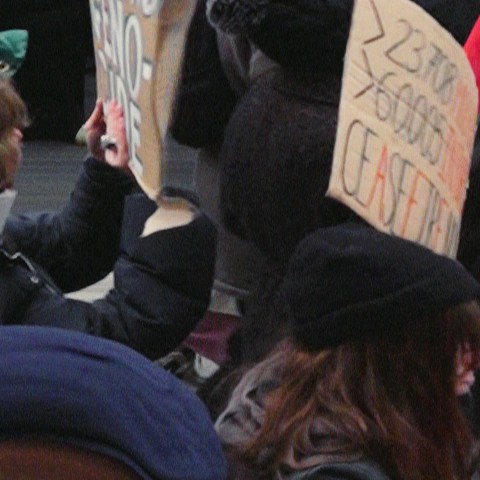 GENO-
CIDE
>23.708
>60.005
CEASEFIRE